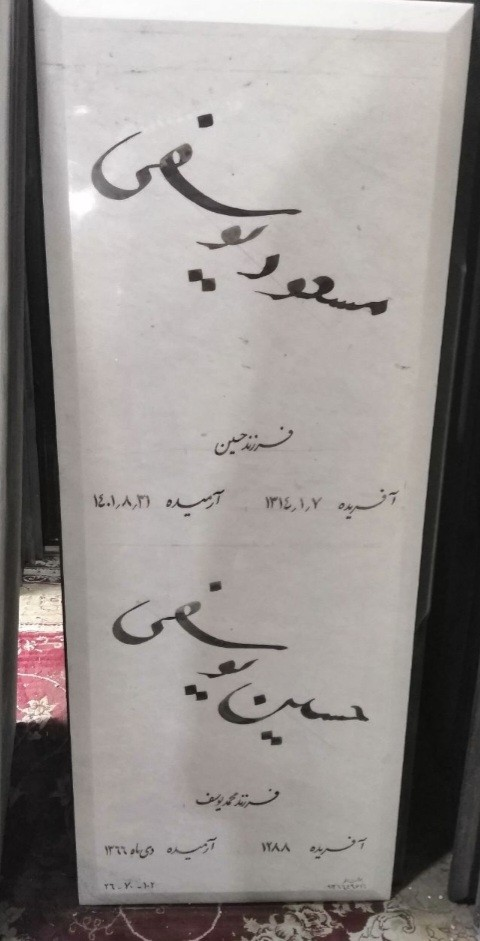 مسعود یوسفی
فرزند حسین
آفریده ۱۳۱٤٫۱٫۷ آرمیده ۱٤۰۱٫۸٫۳۱
حسین یوسفی
فرزند محمد یوسف
آفریده ۱۲۸۸ آرمیده دی ماه ۱۳٦٦
۲٦-۷۰-۱۰۲